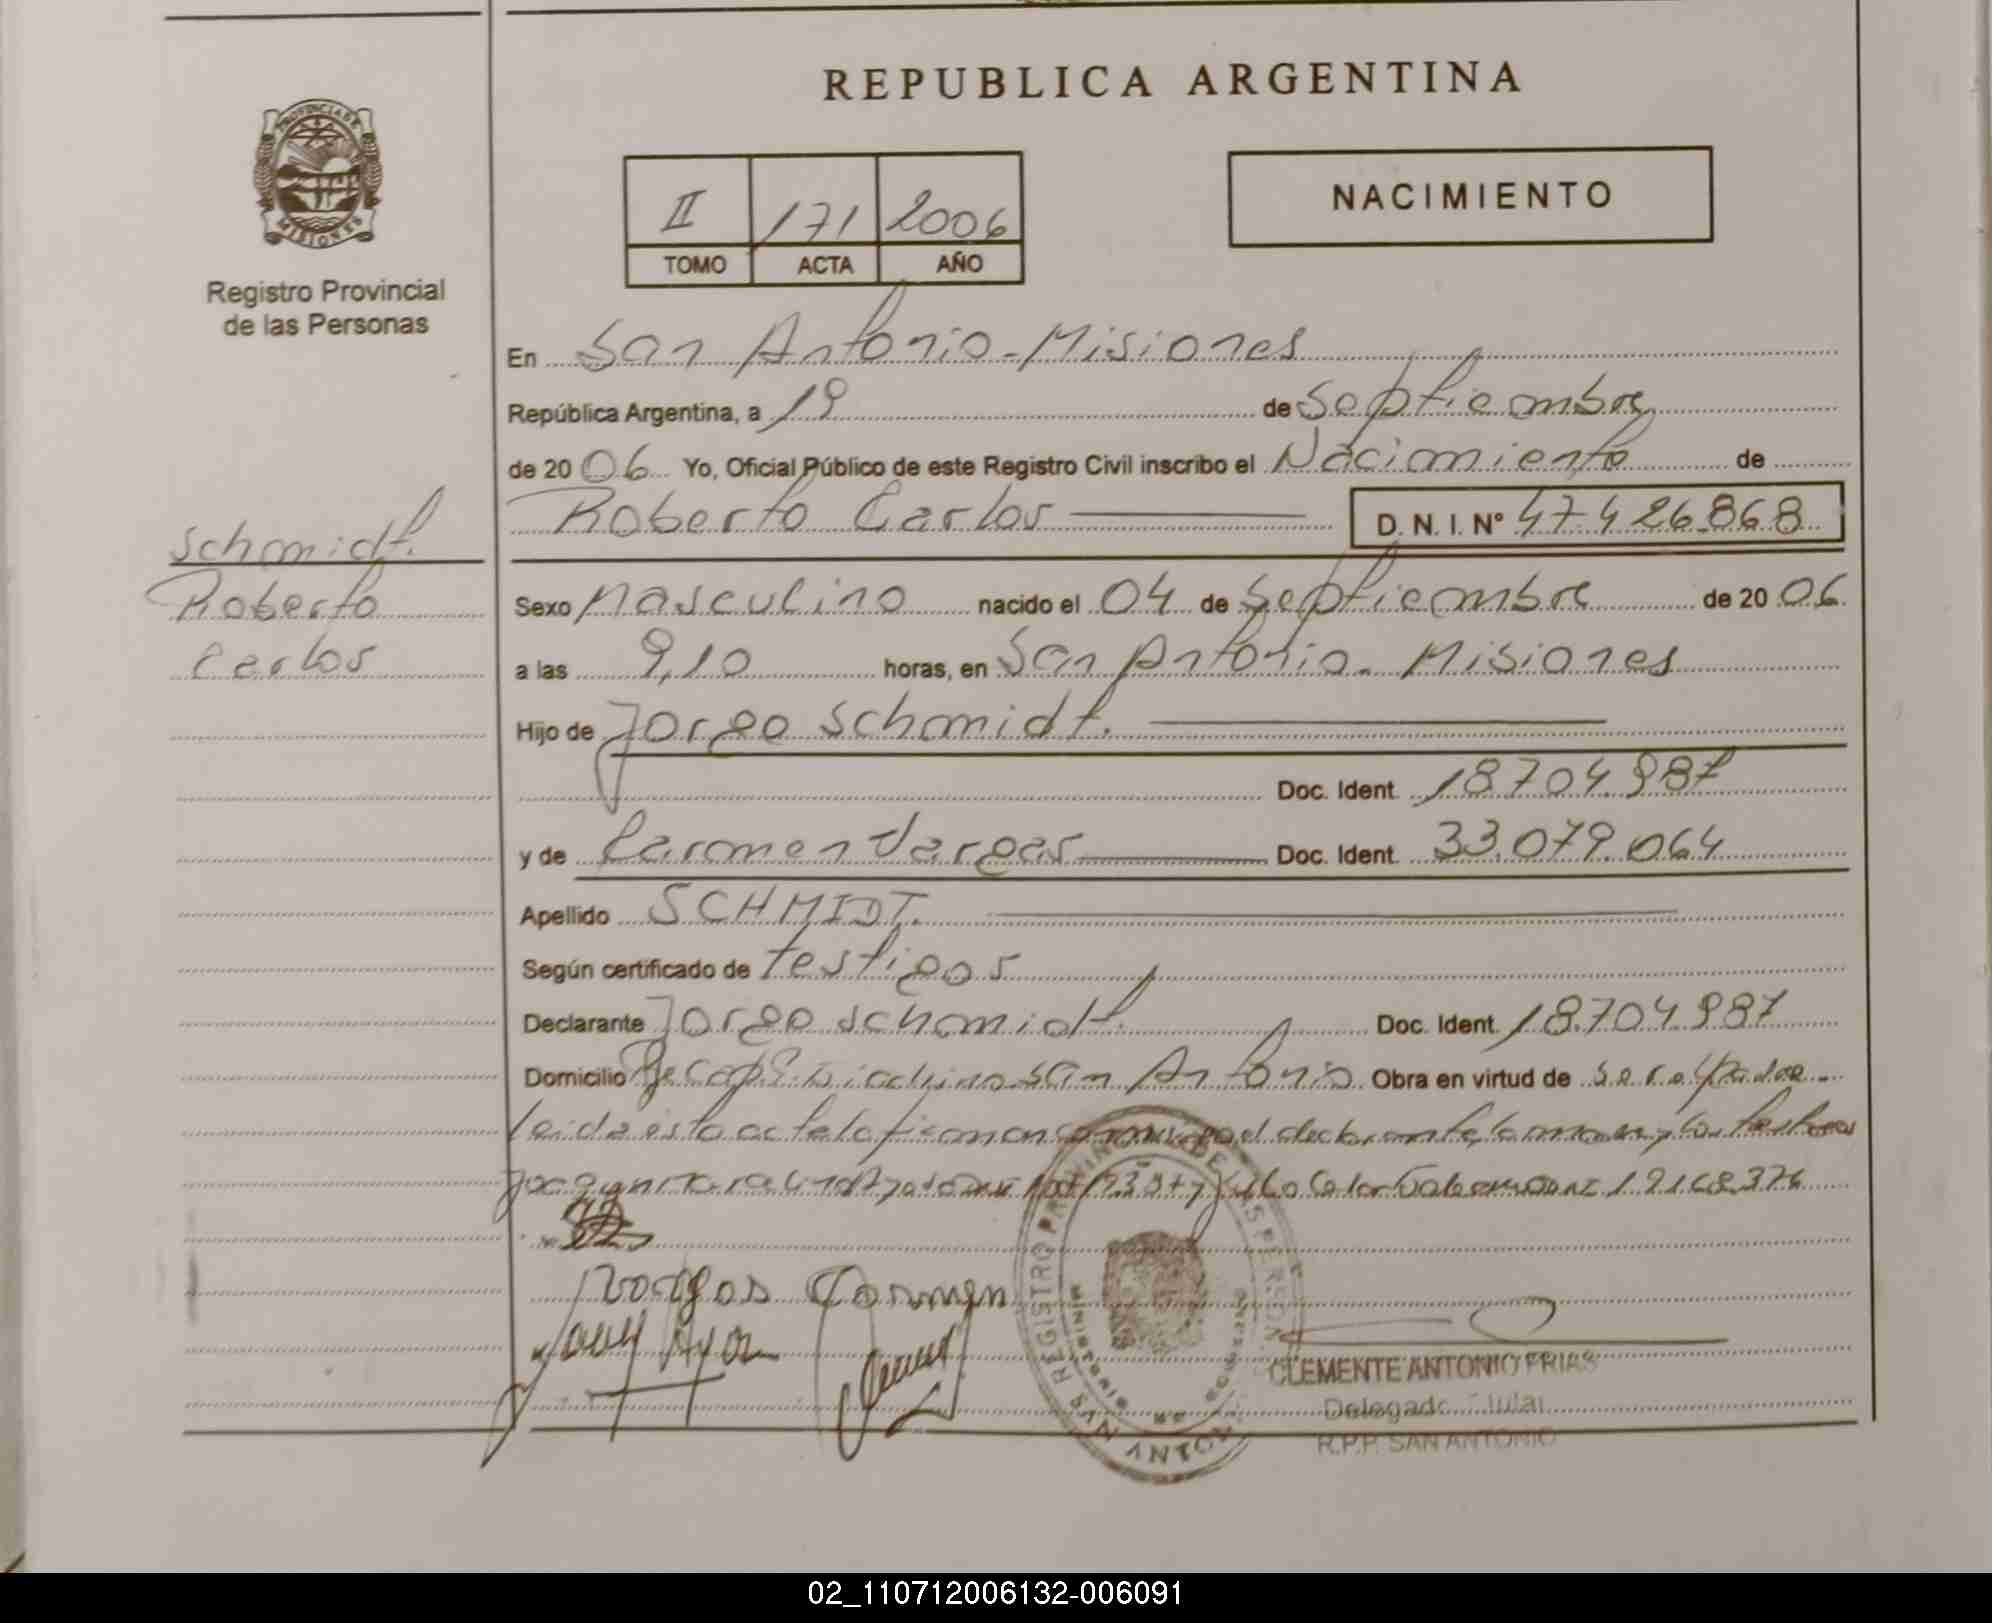 REPUBLICA ARGENTINA
PROVINCIA DE
MISIONES
Registro Provincial
de las Personas
II 171 2006
TOMO ACTA AÑO
NACIMIENTO
En San Antonio - Misiones
República Argentina, a 19 de Septiembre
de 2006 Yo, Oficial Público de este Registro Civil inscribo el Nacimiento de
Roberto Carlos D. N. I. Nº 47426868
Schmidt.
Roberto
Carlos
Sexo Masculino nacido el 04 de Septiembre de 2006
a las 9,10 horas, en San Antonio - Misiones
Hijo de Jorge Schmidt.
Doc. Ident. 18704987
y de Carmen Vargas Doc. Ident. 33.079.064
Apellido SCHMIDT.
Según certificado de testigos
Declarante Jorge Schmidt. Doc. Ident. 18.704.987
Domicilio San Antonio Obra en virtud de ser el Padre
Leida esta acta la firman conmigo el declarante, la madre y los testigos
Vargas Carmen
REGISTRO PROVINCIAL DE LAS PERSONAS
CLEMENTE ANTONIO FRIAS
Delegado Titular
R.P.P. SAN ANTONIO
02_110712006132-006091